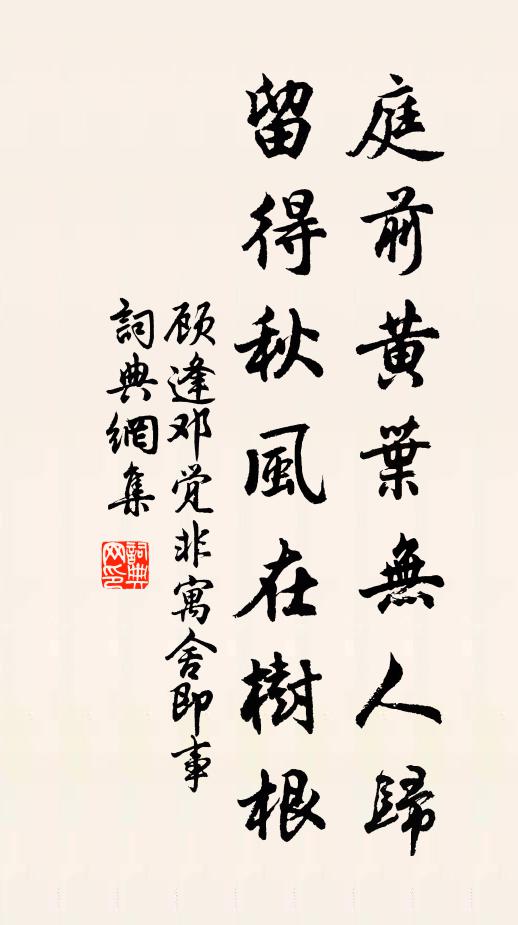 庭前黄葉無人歸
留得秋風在樹根
顾逢邓觉非寓舍即事
詞典網集
詞典
网印